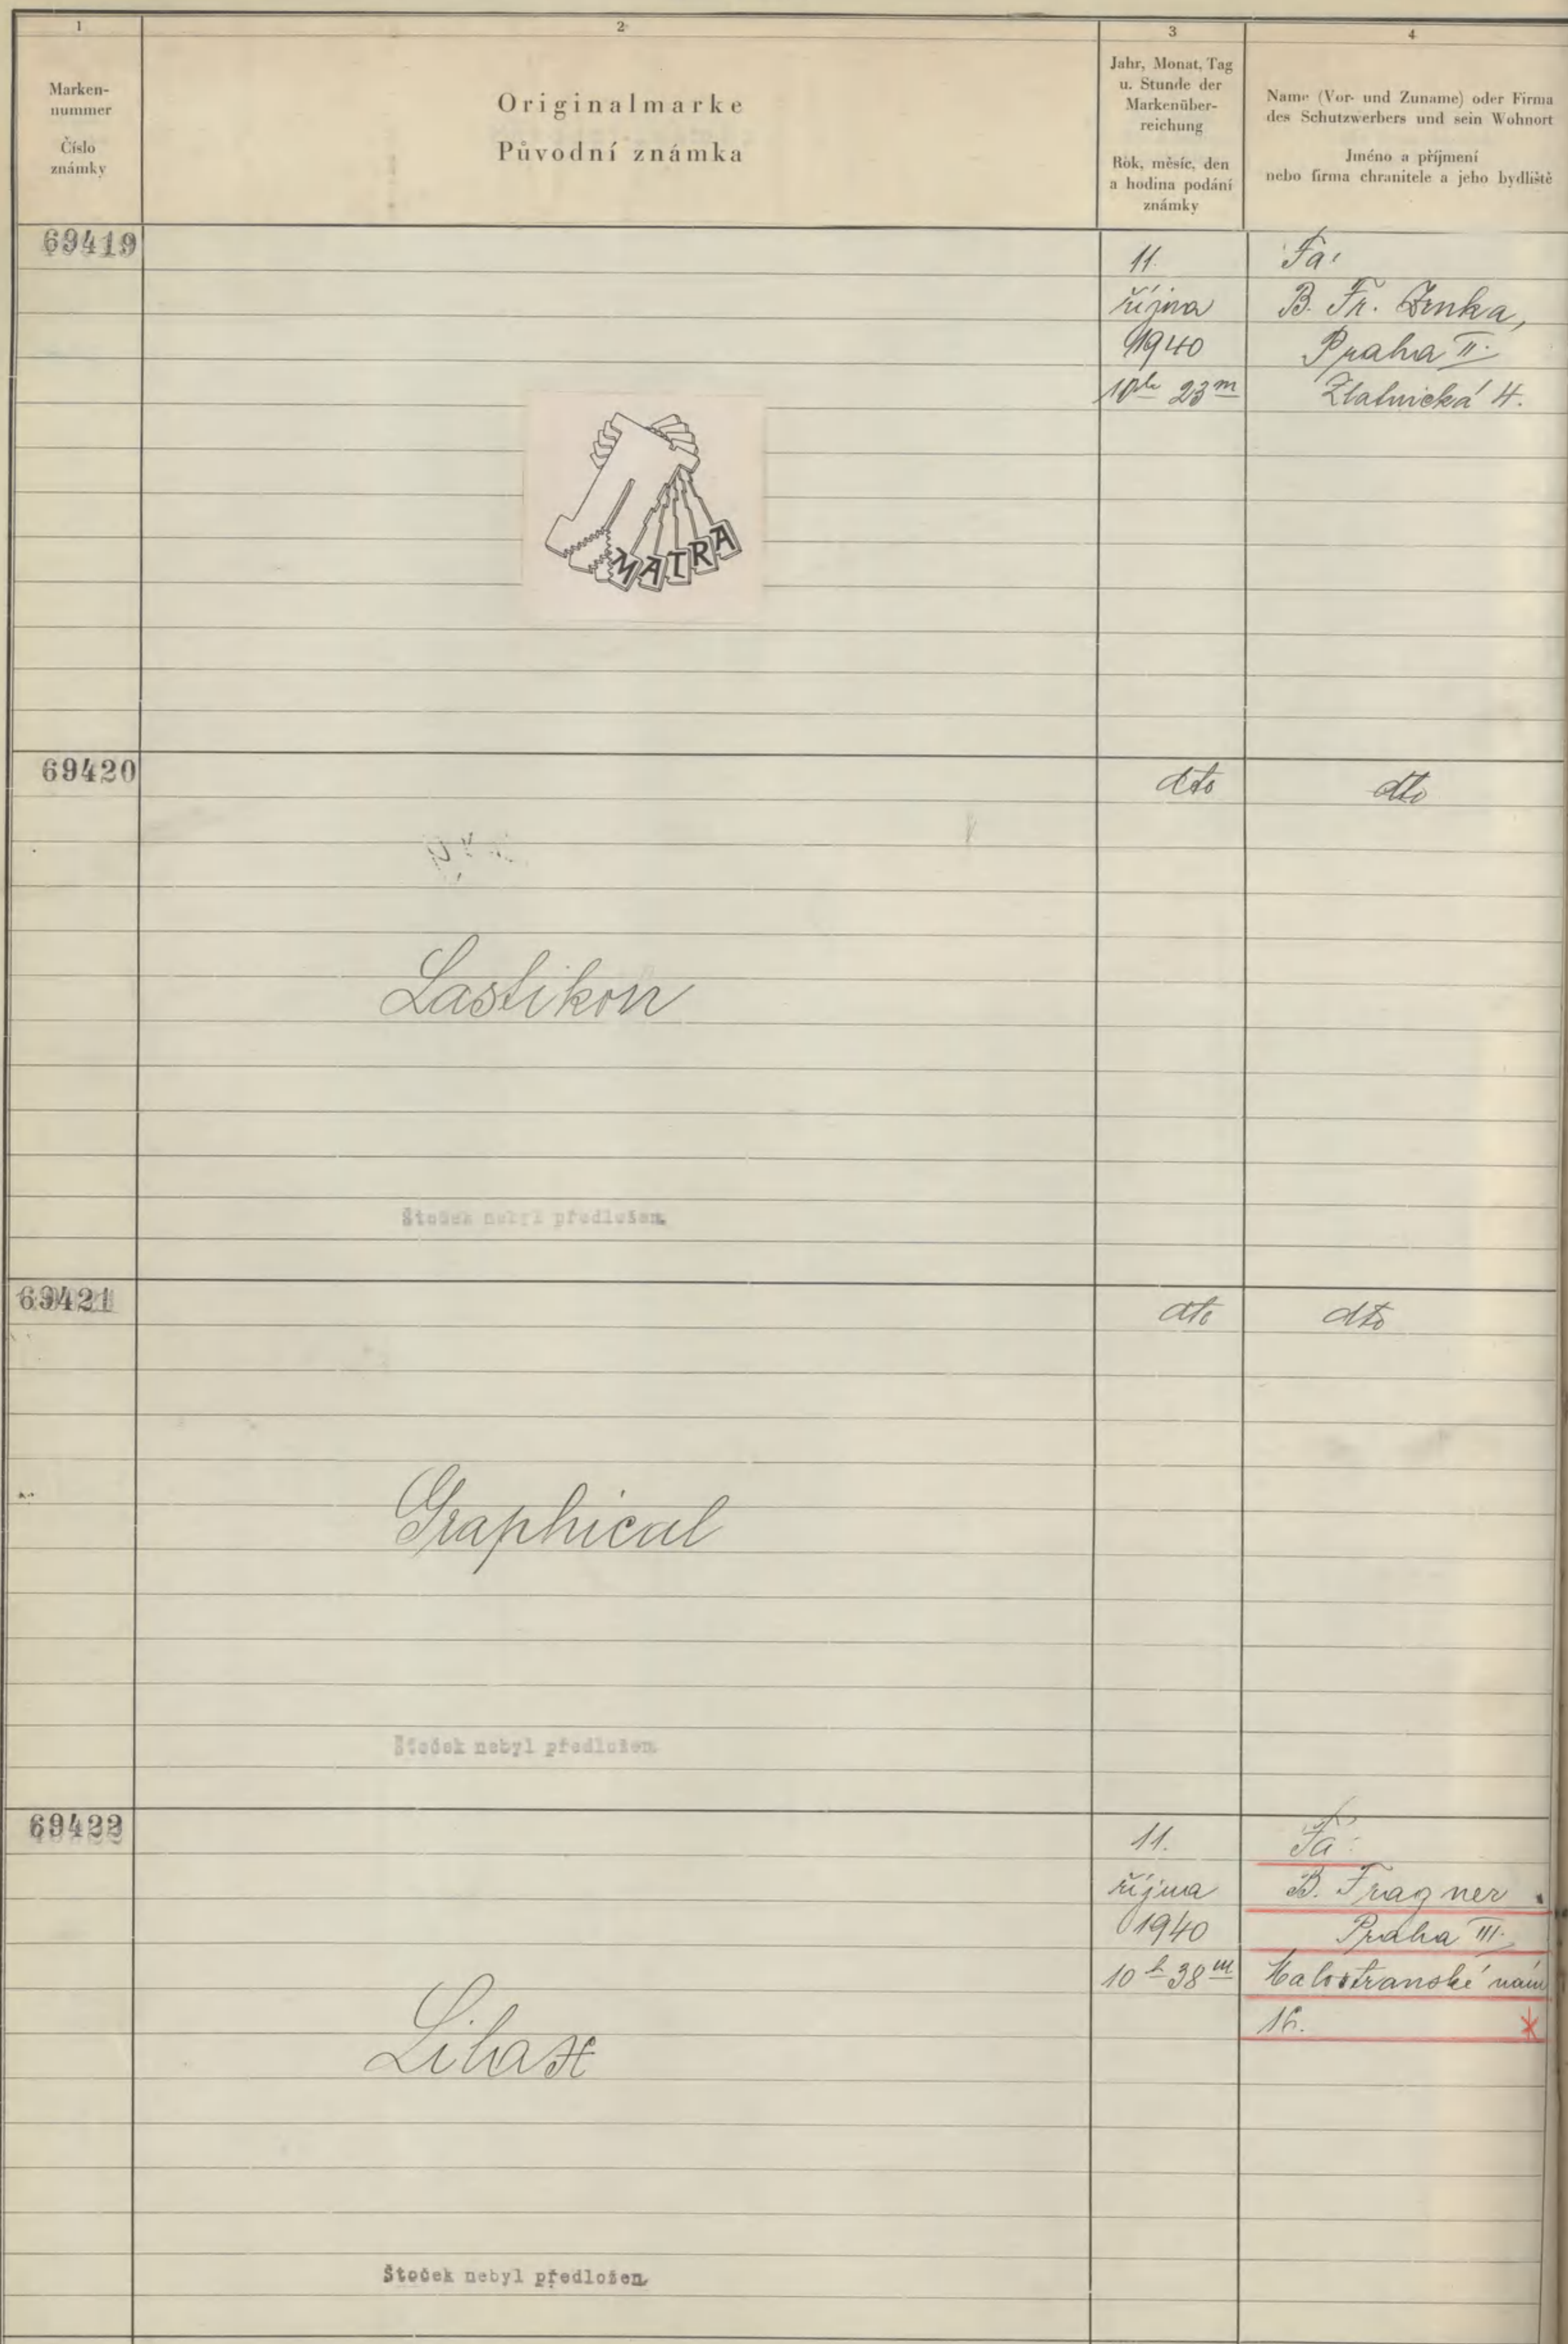 1
Marken-
nummer
Číslo
známky
2
Originalmarke
Původní známka
3
Jahr, Monat, Tag
u. Stunde der
Markenüber-
reichung
Rok, měsíc, den
a hodina podání
známky
4
Name (Vor- und Zuname) oder Firma
des Schutzwerbers und sein Wohnort
Jméno a příjmení
nebo firma chranitele a jeho bydliště
69419
MATRA
11.
října
1940
10h 23m
Fa:
B. Fr.
Praha II.
Zlatnická 4.
69420
Lastikon
Štoček nebyl předložen.
dto
dto
69421
Graphical
Štoček nebyl předložen.
dto
dto
69422
Lihax
Štoček nebyl předložen.
11.
října
1940
10h 38m
Fa:
B. Fragner
Praha III.
Malostranské nám
16.